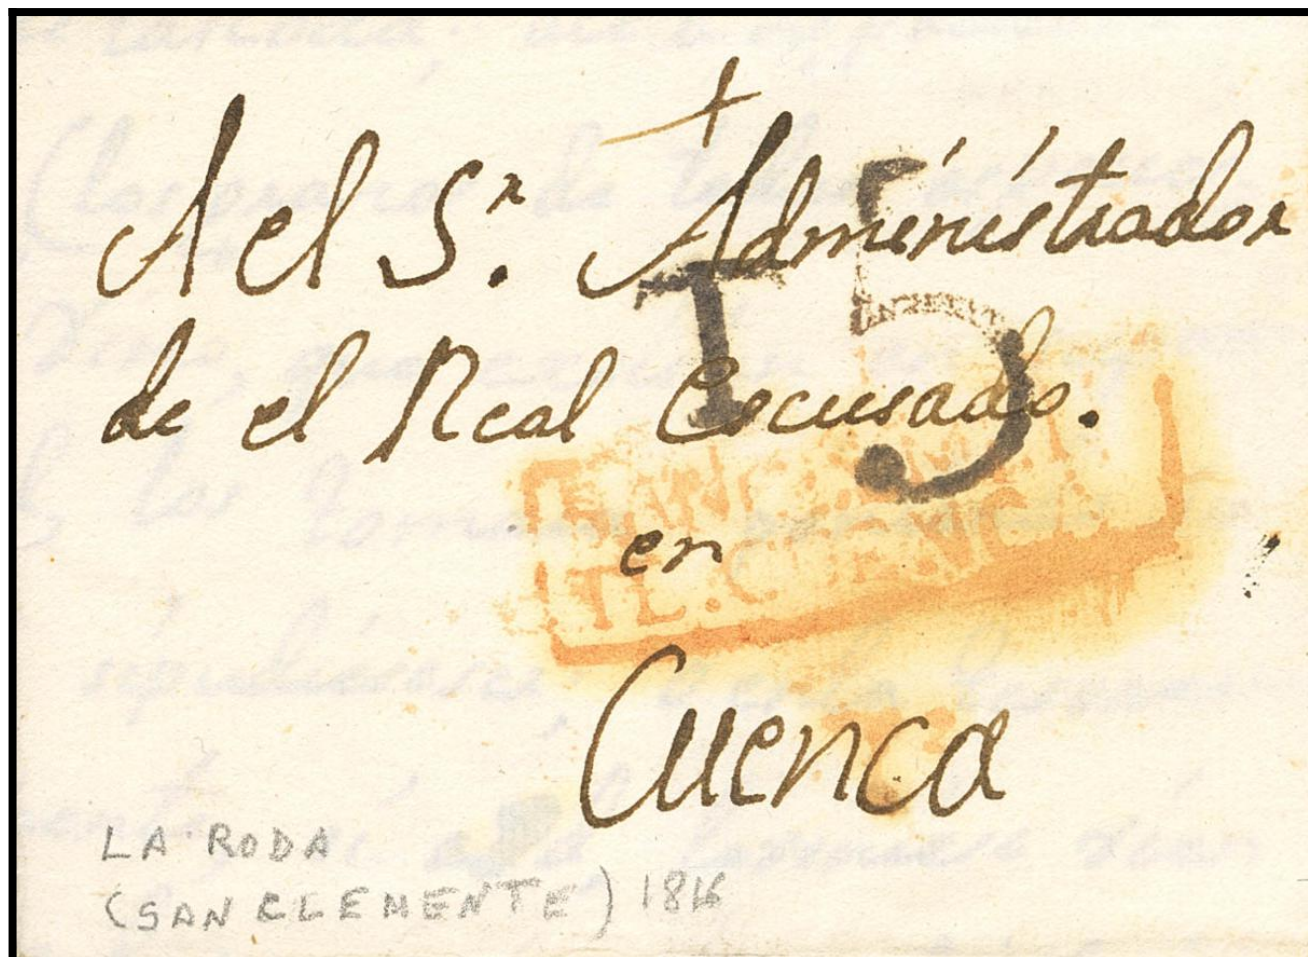 A el S.r Administrador
de el Real Escusado.
15
SAN
TE.CUENCA
en
Cuenca
LA RODA
(SAN CLEMENTE) 1816